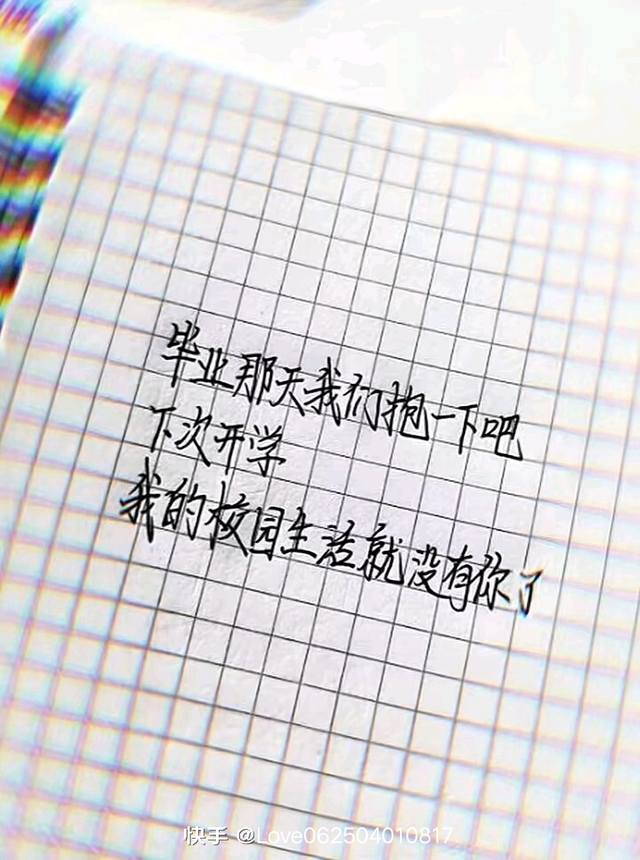 毕业那天我们抱一下吧
下次开学
我的校园生活就没有你了
快手 @Love062504010817